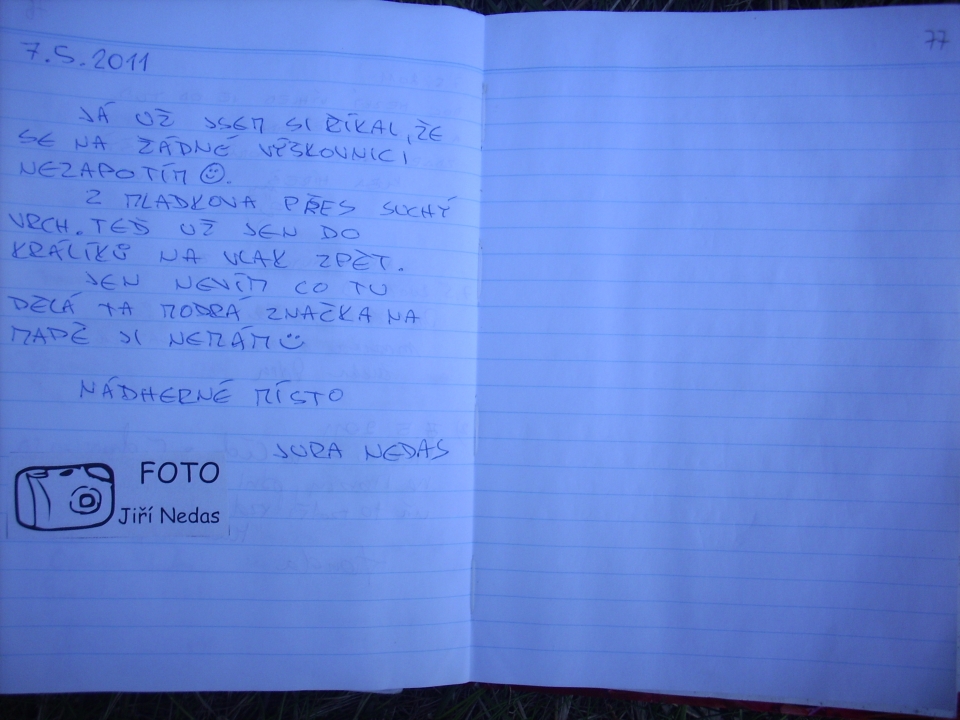 77
7.5.2011
JÁ UŽ JSEM SI ŘÍKAL, ŽE
SE NA ŽÁDNÉ VÝŠKOVNICI
NEZAPOTÍM ☺.
Z MLADKOVA PŘES SUCHÝ
VRCH. TEĎ UŽ JEN DO
KRÁLÍKŮ NA VLAK ZPĚT.
JEN NEVÍM CO TU
DĚLÁ TA MODRÁ ZNAČKA NA
MAPĚ JI NEMÁM ☺
NÁDHERNÉ MÍSTO
JURA NEDAS
FOTO
Jiří Nedas